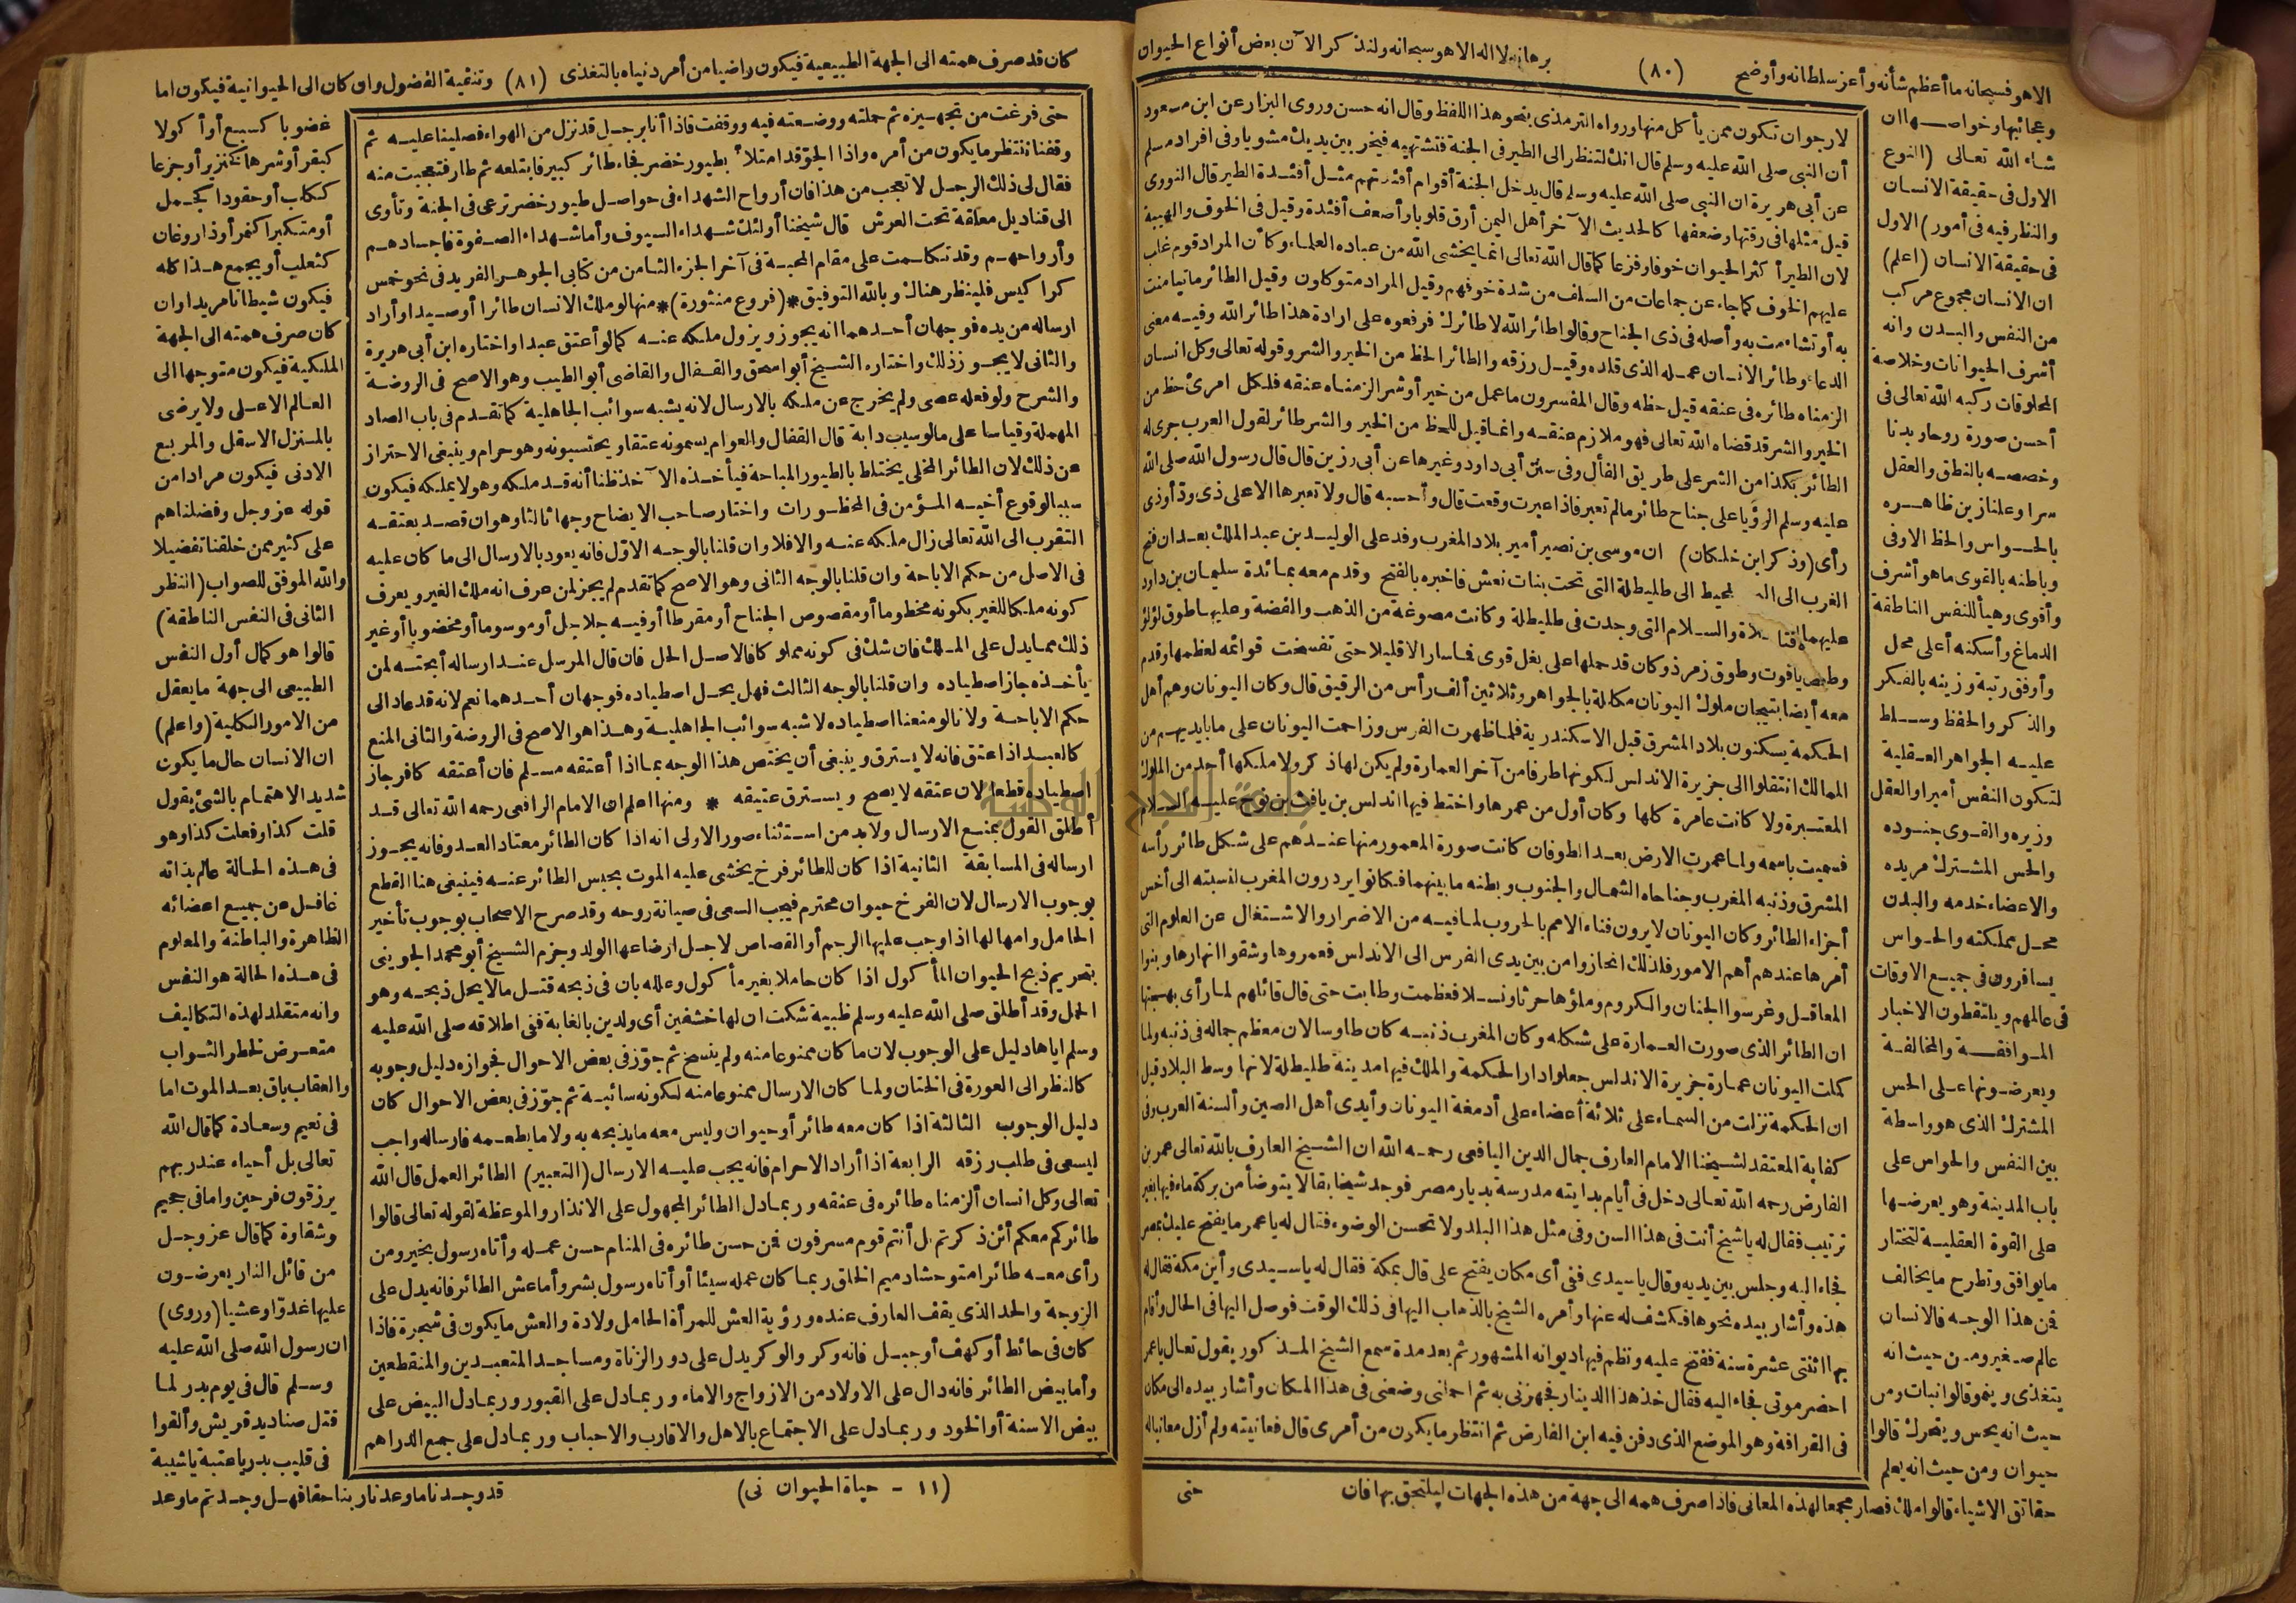 الا هو فسبحانه ما أعظم شأنه وأعز سلطانه وأوضح
(٨٠)
برهانه لا اله الا هو سبحانه ولنذكر الآن بعض أنواع الحيوان
وعجائبها وخواصها ان
شاء الله تعالى (النوع
الاول فى حقيقة الانسان
والنظر فيه فى أمور) الاول
فى حقيقة الانسان (اعلم)
ان الانسان مجموع مركب
من النفس والبدن وانه
أشرف الحيوانات وخلاصة
المخلوقات ركبه الله تعالى فى
أحسن صورة روحا وبدنا
وخصصه بالنطق والعقل
سرا وعلنا زين ظاهره
بالحواس والحظ الاوفى
وباطنه بالقوى ما هو أشرف
وأقوى وهيأ للنفس الناطقة
الدماغ وأسكنه أعلى محل
وأوفق رتبة وزينه بالفكر
والذكر والحفظ وسلط
عليه الجواهر العقلية
لتكون النفس أميرا والعقل
وزيره والقوى جنوده
والحس المشترك مريده
والاعضاء خدمه والبدن
محل مملكته والحواس
يسافرون فى جميع الاوقات
فى عالمهم ويلتقطون الاخبار
الموافقة والمخالفة
ويعرضونها على الحس
المشترك الذى هو واسطة
بين النفس والحواس على
باب المدينة وهو يعرضها
على القوة العقلية لتختار
ما يوافق وتطرح ما يخالف
فمن هذا الوجه فالانسان
عالم صغير ومن حيث انه
يتغذى وينمو قالوا نبات ومن
حيث انه يحس ويتحرك قالوا
حيوان ومن حيث انه يعلم
حقائق الاشياء قالوا ملك فصار مجمعا لهذه المعانى فاذا صرف همه الى جهة من هذه الجهات ليلتحق بها فان
لارجو ان تكون ممن يأكل منها ورواه الترمذى بنحو هذا اللفظ وقال انه حسن وروى البزار عن ابن مسعود
أن النبى صلى الله عليه وسلم قال انك لتنظر الى الطير فى الجنة فتشتهيه فيخر بين يديك مشويا وفى افراد مسلم
عن أبى هريرة ان النبى صلى الله عليه وسلم قال يدخل الجنة أقوام أفئدتهم مثل أفئدة الطير قال النووى
قيل مثلها فى رقتها وضعفها كالحديث الآخر أهل اليمن أرق قلوبا وأضعف أفئدة وقيل فى الخوف والهيبة
لان الطير أكثر الحيوان خوفا وفزعا كما قال الله تعالى انما يخشى الله من عباده العلماء وكأن المراد قوم غلب
عليهم الخوف كما جاء عن جماعات من السلف من شدة خوفهم وقيل المراد متوكلون وقيل الطائر ما تيامنت
به أو تشاءمت به وأصله فى ذى الجناح وقالوا طائر الله لا طائرك فرفعوه على ارادة هذا طائر الله وفيه معنى
الدعاء وطائر الانسان عمله الذى قلده وقيل رزقه والطائر الحظ من الخير والشر وقوله تعالى وكل انسان
الزمناه طائره فى عنقه قيل حظه وقال المفسرون ما عمل من خير أو شر الزمناه عنقه فلكل امرئ حظ من
الخير والشر قد قضاه الله تعالى فهو ملازم عنقه وانما قيل للحظ من الخير والشر طائر لقول العرب جرى له
الطائر بكذا من الشر على طريق الفأل وفى سنن أبى داود وغيرها عن أبى رزين قال قال رسول الله صلى الله
عليه وسلم الرؤيا على جناح طائر ما لم تعبر فاذا عبرت وقعت قال وأحسبه قال ولا تعبرها الا على ذى ود أو ذى
رأى (وذكر ابن خلكان) ان موسى بن نصير أمير بلاد المغرب وفد على الوليد بن عبد الملك بعد ان فتح
الغرب الى المحيط الى طليطلة التى تحت بنات نعش فاخبره بالفتح وقدم معه بمائدة سليمان بن داود
عليهما الصلاة والسلام التى وجدت فى طليطلة وكانت مصوغة من الذهب والفضة وعليها طوق لؤلؤ
وطوق ياقوت وطوق زمرذ وكان قد حملها على بغل قوى فما سار الا قليلا حتى تفسخت قوائمه لعظمها وقدم
معه أيضا بتيجان ملوك اليونان مكللة بالجواهر وثلاثين ألف رأس من الرقيق قال وكان اليونان وهم أهل
الحكمة يسكنون بلاد المشرق قبل الاسكندرية فلما ظهرت الفرس وزاحمت اليونان على ما بايديهم من
الممالك انتقلوا الى جزيرة الاندلس لكونها طرفا من آخر العمارة ولم يكن لها ذكر ولا ملكها أحد من الملوك
المعتبرة ولا كانت عامرة كلها وكان أول من عمرها واختط فيها اندلس بن يافث بن نوح عليه السلام
فسميت باسمه ولما عمرت الارض بعد الطوفان كانت صورة المعمور منها عندهم على شكل طائر رأسه
المشرق وذنبه المغرب وجناحاه الشمال والجنوب وبطنه ما بينهما فكانوا يزدرون المغرب لنسبته الى أخس
أجزاء الطائر وكان اليونان لا يرون فناء الامم بالحروب لما فيه من الاضرار والاشتغال عن العلوم التى
أمرها عندهم أهم الامور فلذلك انحازوا من بين يدى الفرس الى الاندلس فعمروها وشقوا انهارها وبنوا
المعاقل وغرسوا الجنان والكروم وملؤها حرثا ونسلا فعظمت وطابت حتى قال قائلهم لما رأى بهجتها
ان الطائر الذى صورت العمارة على شكله وكان المغرب ذنبه كان طاوسا لان معظم جماله فى ذنبه ولما
كملت اليونان عمارة جزيرة الاندلس جعلوا دار الحكمة والملك فيها مدينة طليطلة لانها وسط البلاد قيل
ان الحكمة نزلت من السماء على ثلاثة أعضاء على أدمغة اليونان وأيدى أهل الصين وألسنة العرب وفى
كفاية المعتقد لشيخنا الامام العارف جمال الدين اليافعى رحمه الله ان الشيخ العارف بالله تعالى عمر بن
الفارض رحمه الله تعالى دخل فى أيام بدايته مدرسة بديار مصر فوجد شيخا بقالا يتوضأ من بركة ماء فيها بغير
ترتيب فقال له يا شيخ أنت فى هذا السن وفى مثل هذا البلد ولا تحسن الوضوء فقال له يا عمر ما يفتح عليك بمصر
فجاء اليه وجلس بين يديه وقال يا سيدى ففى أى مكان يفتح على قال بمكة فقال له يا سيدى وأين مكة فقال له
هذه وأشار بيده نحوها فكشف له عنها وأمره الشيخ بالذهاب اليها فى ذلك الوقت فوصل اليها فى الحال وأقام
بها اثنتى عشرة سنة ففتح عليه ونظم فيها ديوانه المشهور ثم بعد مدة سمع الشيخ المذكور يقول تعال يا عمر
احضر موتى فجاء اليه فقال خذ هذا الدينار فجهزنى به ثم احملنى وضعنى فى هذا المكان وأشار بيده الى مكان
فى القرافة وهو الموضع الذى دفن فيه ابن الفارض ثم انتظر ما يكون من أمرى قال فعانيته ولم أزل معانيا له
حتى
كان قد صرف همته الى الجهة الطبيعية فيكون راضيا من أمر دنياه بالتغذى
(٨١)
وتنقية الفضول وان كان الى الحيوانية فيكون اما
حتى فرغت من تجهيزه ثم حملته ووضعته فيه ووقفت فاذا أنا برجل قد نزل من الهواء فصلينا عليه ثم
وقفنا ننتظر ما يكون من أمره واذا الجو قد امتلأ بطيور خضر فجاء طائر كبير فابتلعه ثم طار فتعجبت منه
فقال لى ذلك الرجل لا تعجب من هذا فان أرواح الشهداء فى حواصل طيور خضر ترعى فى الجنة وتأوى
الى قناديل معلقة تحت العرش قال شيخنا أولئك شهداء السيوف وأما شهداء الصفوة فاجسادهم
وأرواحهم وقد تكلمت على مقام المحبة فى آخر الجزء الثامن من كتابى الجوهر الفريد فى نحو خمس
كراكيس فلينظر هناك وبالله التوفيق *(فروع منثورة)* منها لو ملك الانسان طائرا أو صيدا وأراد
ارساله من يده فوجهان أحدهما انه يجوز ويزول ملكه عنه كما لو أعتق عبدا واختاره ابن أبى هريرة
والثانى لا يجوز ذلك واختاره الشيخ أبو اسحق والقفال والقاضى أبو الطيب وهو الاصح فى الروضة
والشرح ولو فعله عصى ولم يخرج عن ملكه بالارسال لانه يشبه سوائب الجاهلية كما تقدم فى باب الصاد
المهملة وقياسا على ما لو سيب دابة قال القفال والعوام يسمونه عتقا ويحتسبونه وهو حرام وينبغى الاحتراز
عن ذلك لان الطائر المخلى يختلط بالطيور المباحة فيأخذه الآخذ ظنا أنه قد ملكه وهو لا يملكه فيكون
سببا لوقوع أخيه المؤمن فى المحظورات واختار صاحب الايضاح وجها ثالثا وهو ان قصد بعتقه
التقرب الى الله تعالى زال ملكه عنه والا فلا وان قلنا بالوجه الاول فانه يعود بالارسال الى ما كان عليه
فى الاصل من حكم الاباحة وان قلنا بالوجه الثانى وهو الاصح كما تقدم لم يجز لمن عرف انه ملك الغير ويعرف
كونه ملكا للغير بكونه مخطوما أو مقصوص الجناح أو مقرطا أو فيه جلاجل أو موسوما أو مخضوبا أو غير
ذلك مما يدل على الملك فان شك فى كونه مملوكا فالاصل الحل فان قال المرسل عند ارساله أبحته لمن
يأخذه جاز اصطياده وان قلنا بالوجه الثالث فهل يحل اصطياده فوجهان أحدهما نعم لانه قد عاد الى
حكم الاباحة ولانا لو منعنا اصطياده لاشبه سوائب الجاهلية وهذا هو الاصح فى الروضة والثانى المنع
كالعبد اذا عتق فانه لا يسترق وينبغى أن يختص هذا الوجه بما اذا أعتقه مسلم فان أعتقه كافر جاز
اصطياده قطعا لان عتقه لا يصح ويسترق عتيقه * ومنها اعلم ان الامام الرافعى رحمه الله تعالى قد
أطلق القول بمنع الارسال ولا بد من استثناء صور الاولى انه اذا كان الطائر معتاد العدو فانه يجوز
ارساله فى المسابقة الثانية اذا كان للطائر فرخ يخشى عليه الموت بحبس الطائر عنه فينبغى هنا القطع
بوجوب الارسال لان الفرخ حيوان محترم فيجب السعى فى صيانة روحه وقد صرح الاصحاب بوجوب تأخير
الحامل وامهالها اذا وجب عليها الرجم أو القصاص لاجل ارضاعها الولد وجزم الشيخ أبو محمد الجوينى
بتحريم ذبح الحيوان المأكول اذا كان حاملا بغير مأكول وعلله بان فى ذبحه قتل ما لا يحل ذبحه وهو
الحمل وقد أطلق صلى الله عليه وسلم ظبية شكت ان لها خشفين أى ولدين بالغابة ففى اطلاقه صلى الله عليه
وسلم اياها دليل على الوجوب لان ما كان ممنوعا منه ولم ينسخ ثم جوز فى بعض الاحوال فجوازه دليل وجوبه
كالنظر الى العورة فى الختان ولما كان الارسال ممنوعا منه لكونه سائبة ثم جوز فى بعض الاحوال كان
دليل الوجوب الثالثة اذا كان معه طائر أو حيوان وليس معه ما يذبحه به ولا ما يطعمه فارساله واجب
ليسعى فى طلب رزقه الرابعة اذا أراد الاحرام فانه يجب عليه الارسال (التعبير) الطائر العمل قال الله
تعالى وكل انسان ألزمناه طائره فى عنقه وربما دل الطائر المجهول على الانذار والموعظة لقوله تعالى قالوا
طائركم معكم أئن ذكرتم بل أنتم قوم مسرفون فمن حسن طائره فى المنام حسن عمله وأتاه رسول بخير ومن
رأى معه طائرا متوحشا دميم الخلق ربما كان عمله سيئا أو أتاه رسول بشر وأما عش الطائر فانه يدل على
الزوجة والحد الذى يقف العارف عنده ورؤية العش للمرأة الحامل ولادة والعش ما يكون فى شجرة فاذا
كان فى حائط أو كهف أو جبل فانه وكر والوكر يدل على دور الزناة ومساجد المتعبدين والمنقطعين
وأما بيض الطائر فانه دال على الاولاد من الازواج والاماء وربما دل على القبور وربما دل البيض على
بيض الاسنة أو الخود وربما دل على الاجتماع بالاهل والاقارب والاحباب وربما دل على جمع الدراهم
(١١ - حياة الحيوان نى)
غضوبا كسبع أو أكولا
كبقر أو شرها كخنزير أو جزعا
ككلب أو حقودا كجمل
أو متكبرا كنمر أو ذا روغان
كثعلب أو يجمع هذا كله
فيكون شيطانا مريدا وان
كان صرف همته الى الجهة
الملكية فيكون متوجها الى
العالم الاعلى ولا يرضى
بالمنزل الاسفل والمربع
الادنى فيكون مرادا من
قوله عز وجل وفضلناهم
على كثير ممن خلقنا تفضيلا
والله الموفق للصواب (النظر
الثانى فى النفس الناطقة)
قالوا هو كمال أول النفس
الطبيعى الى جهة ما يعقل
من الامور الكلية (واعلم)
ان الانسان حال ما يكون
شديد الاهتمام بالشئ يقول
قلت كذا وفعلت كذا وهو
فى هذه الحالة عالم بذاته
غافل عن جميع اعضائه
الظاهرة والباطنة والمعلوم
فى هذه الحالة هو النفس
وانه متقلد لهذه التكاليف
متعرض لخطر الثواب
والعقاب باق بعد الموت اما
فى نعيم وسعادة كما قال الله
تعالى بل أحياء عند ربهم
يرزقون فرحين واما فى جحيم
وشقاوة كما قال عز وجل
من قائل النار يعرضون
عليها غدوا وعشيا (وروى)
ان رسول الله صلى الله عليه
وسلم قال فى يوم بدر لما
قتل صناديد قريش وألقوا
فى قليب بدر يا عتبة يا شيبة
قد وجدنا ما وعدنا ربنا حقا فهل وجدتم ما وعد
جامعة النجاح الوطنية